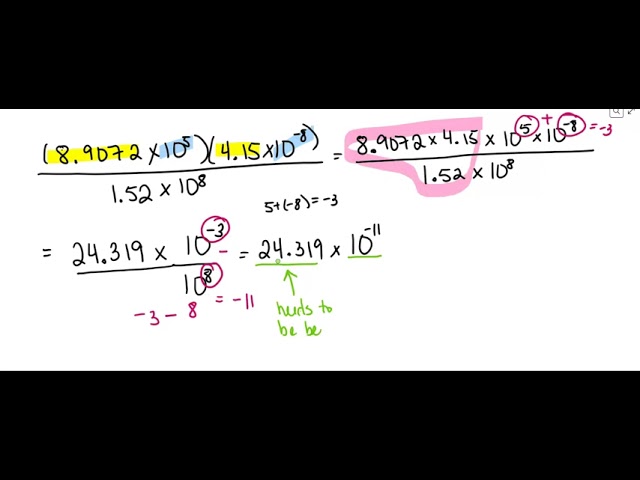 (8.9072 × 10^5)(4.15 × 10^-8) / 1.52 × 10^8 = 8.9072 × 4.15 × 10^5 × 10^-8 / 1.52 × 10^8 + = -3
5 + (-8) = -3
= 24.319 × 10^-3 / 10^8 - = 24.319 × 10^-11
-3 - 8 = -11
needs to
be be